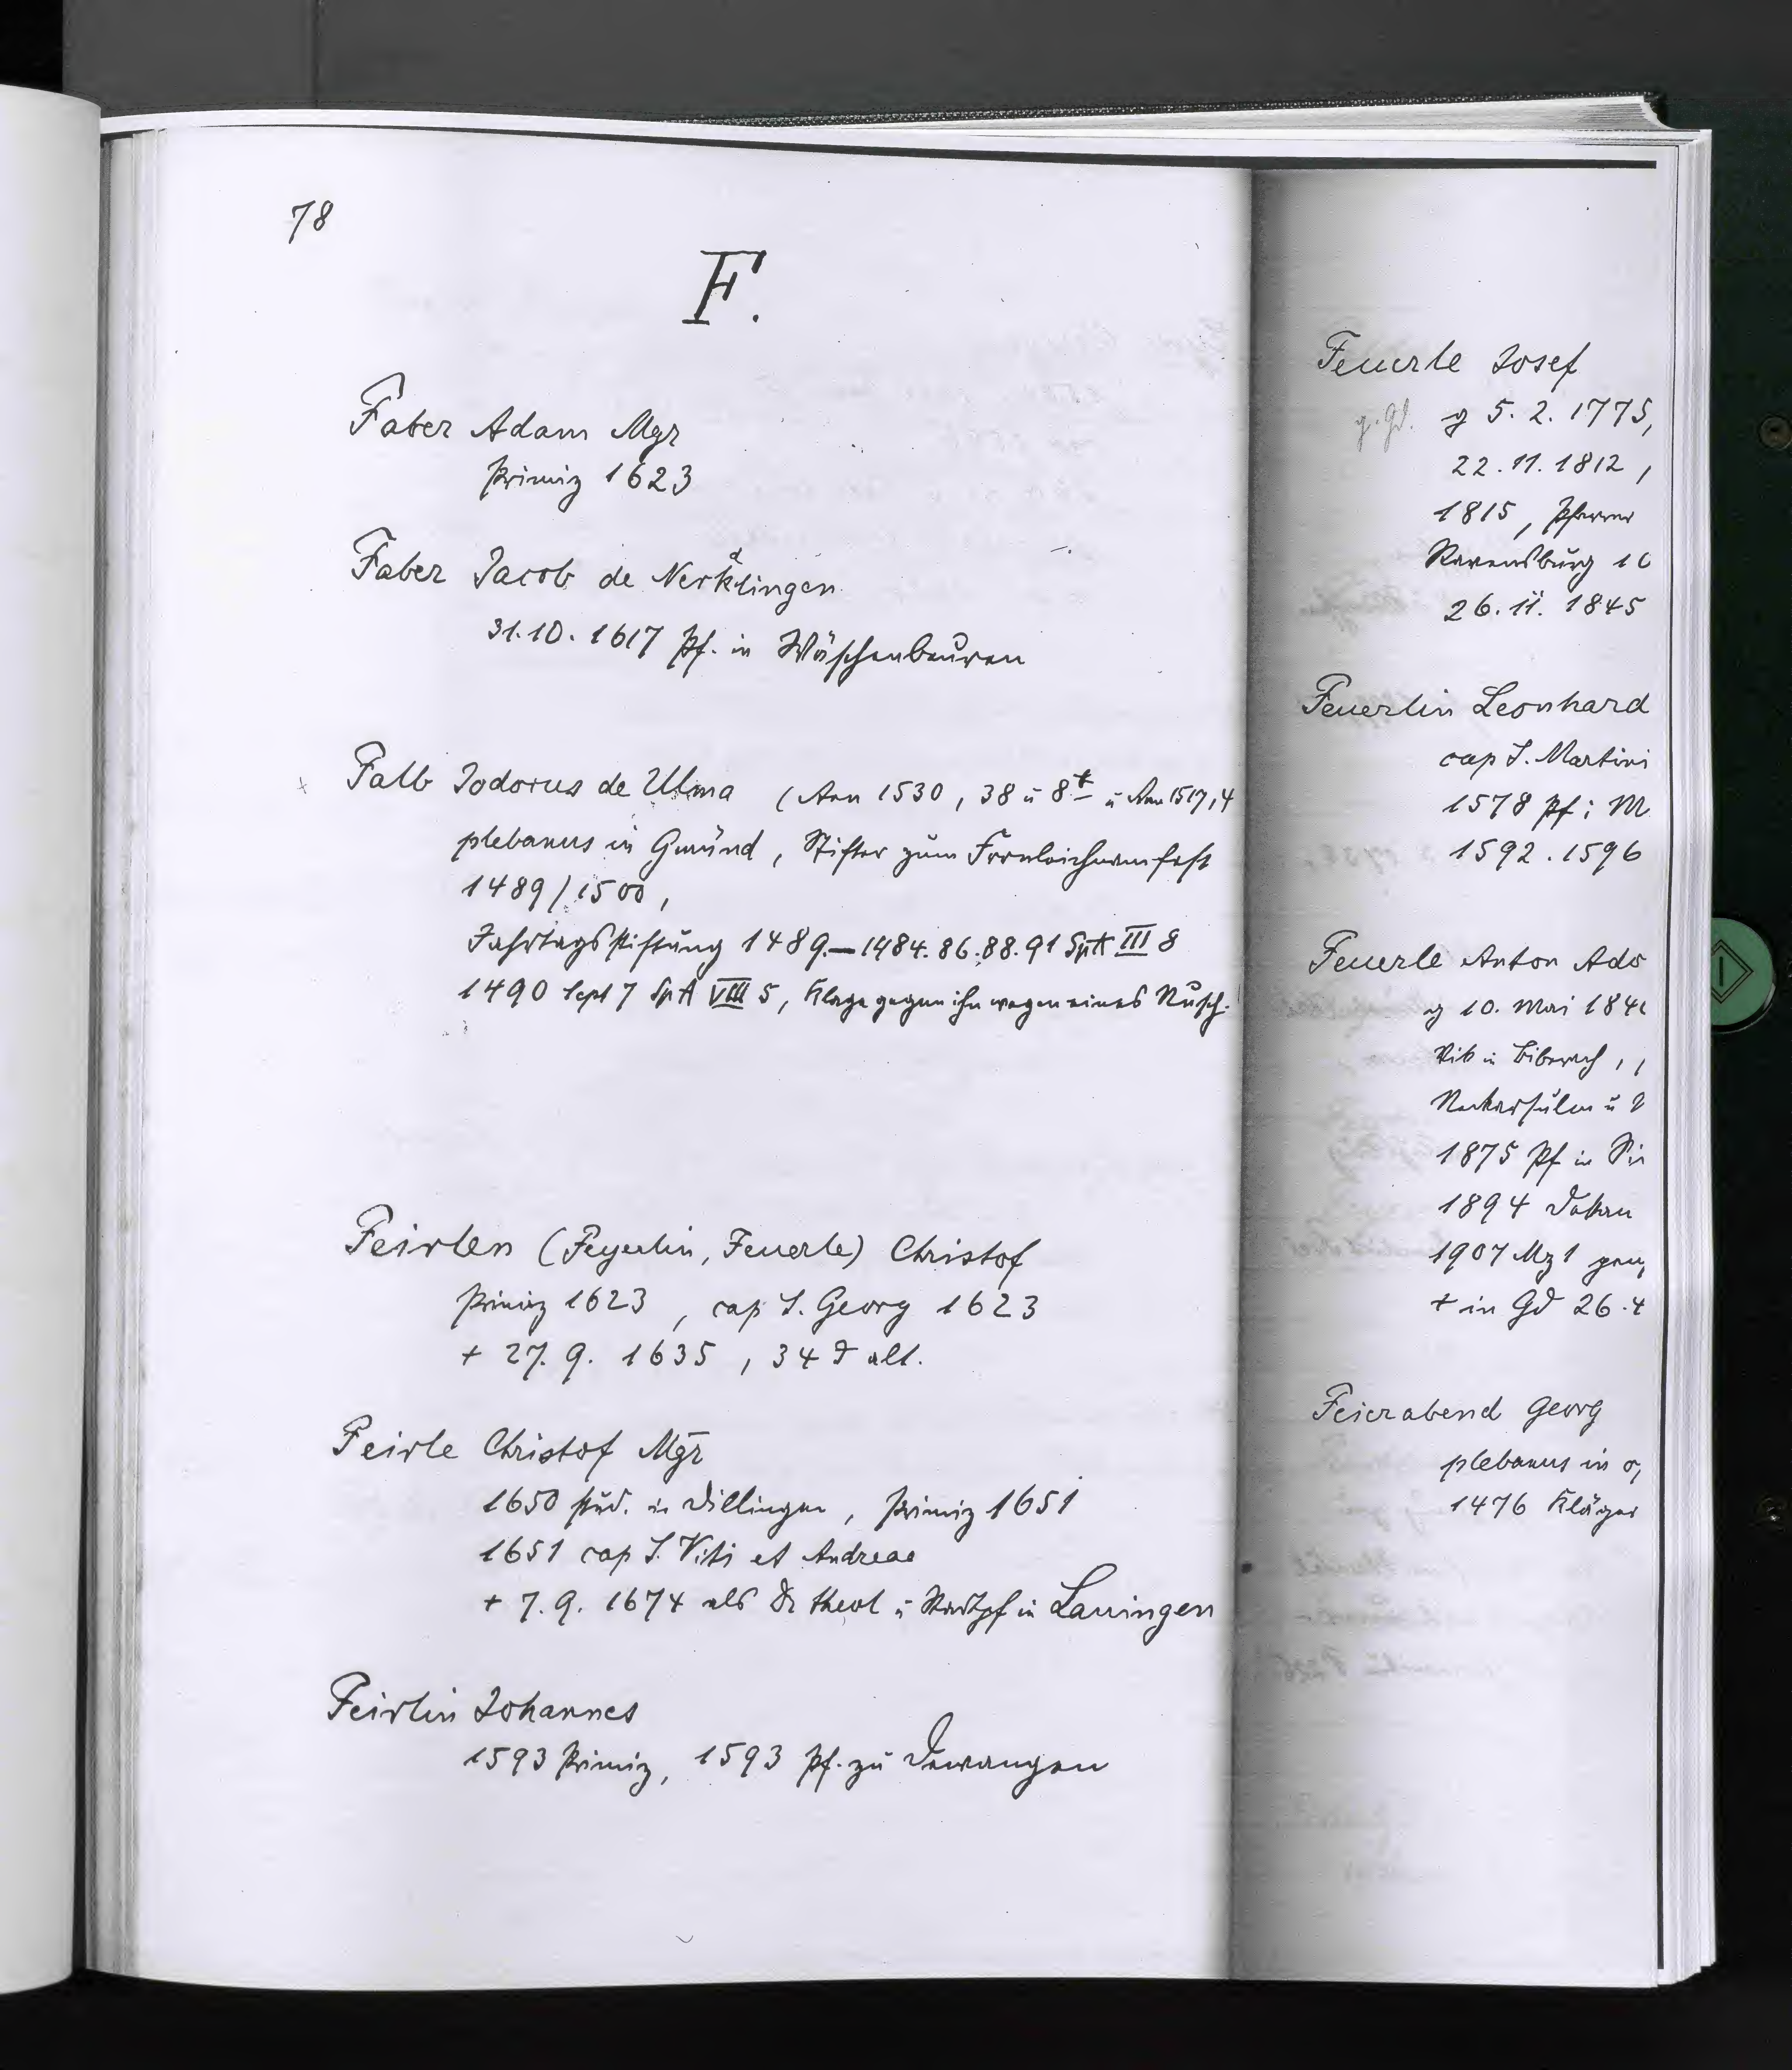 78
F.
Faber Adam Mgr
Primiz 1623
Faber Jacob de Nerklingen
31.10.1617 Pf. in Wäschenbeuren
Falb Jodocus de Ulma (Ann 1530, 38 u 8 u Ann 1517,4
plebanus in Gmünd, Stifter zum Fronleichnamsfest
1489/1500,
Jahrtagsstiftung 1489.—1484.86.88.91 SpA III 8
1490 Sept 7 SpA VIII 5, Klage gegen ihn wegen eines
Feirlen (Feyerlin, Feuerle) Christof
Primiz 1623, cap S. Georg 1623
+ 27.9.1635, 34 J alt.
Feirle Christof Mgr
1650 stud. in Dillingen, Primiz 1651
1651 cap S. Viti et Andreae
+ 7.9.1674 als Dr theol u Stadtpf in Lauingen
Feirlin Johannes
1593 Primiz, 1593 Pf. zu Dewangen
Feuerle Josef
g. Gd. g 5.2.1775,
22.11.1812,
1815, Pfarrer
Ravensburg
26.11.1845
Feuerlin Leonhard
cap S. Martini
1578 Pf i M
1592.1596
Feuerle Anton
g 10. Mai
Vik in Biberach,
Neckarsulm u
1875 Pf in
1894 Dekan
1907 Mz 1
+ in Gd 26.4
Feierabend Georg
plebanus in
1476 Kläger